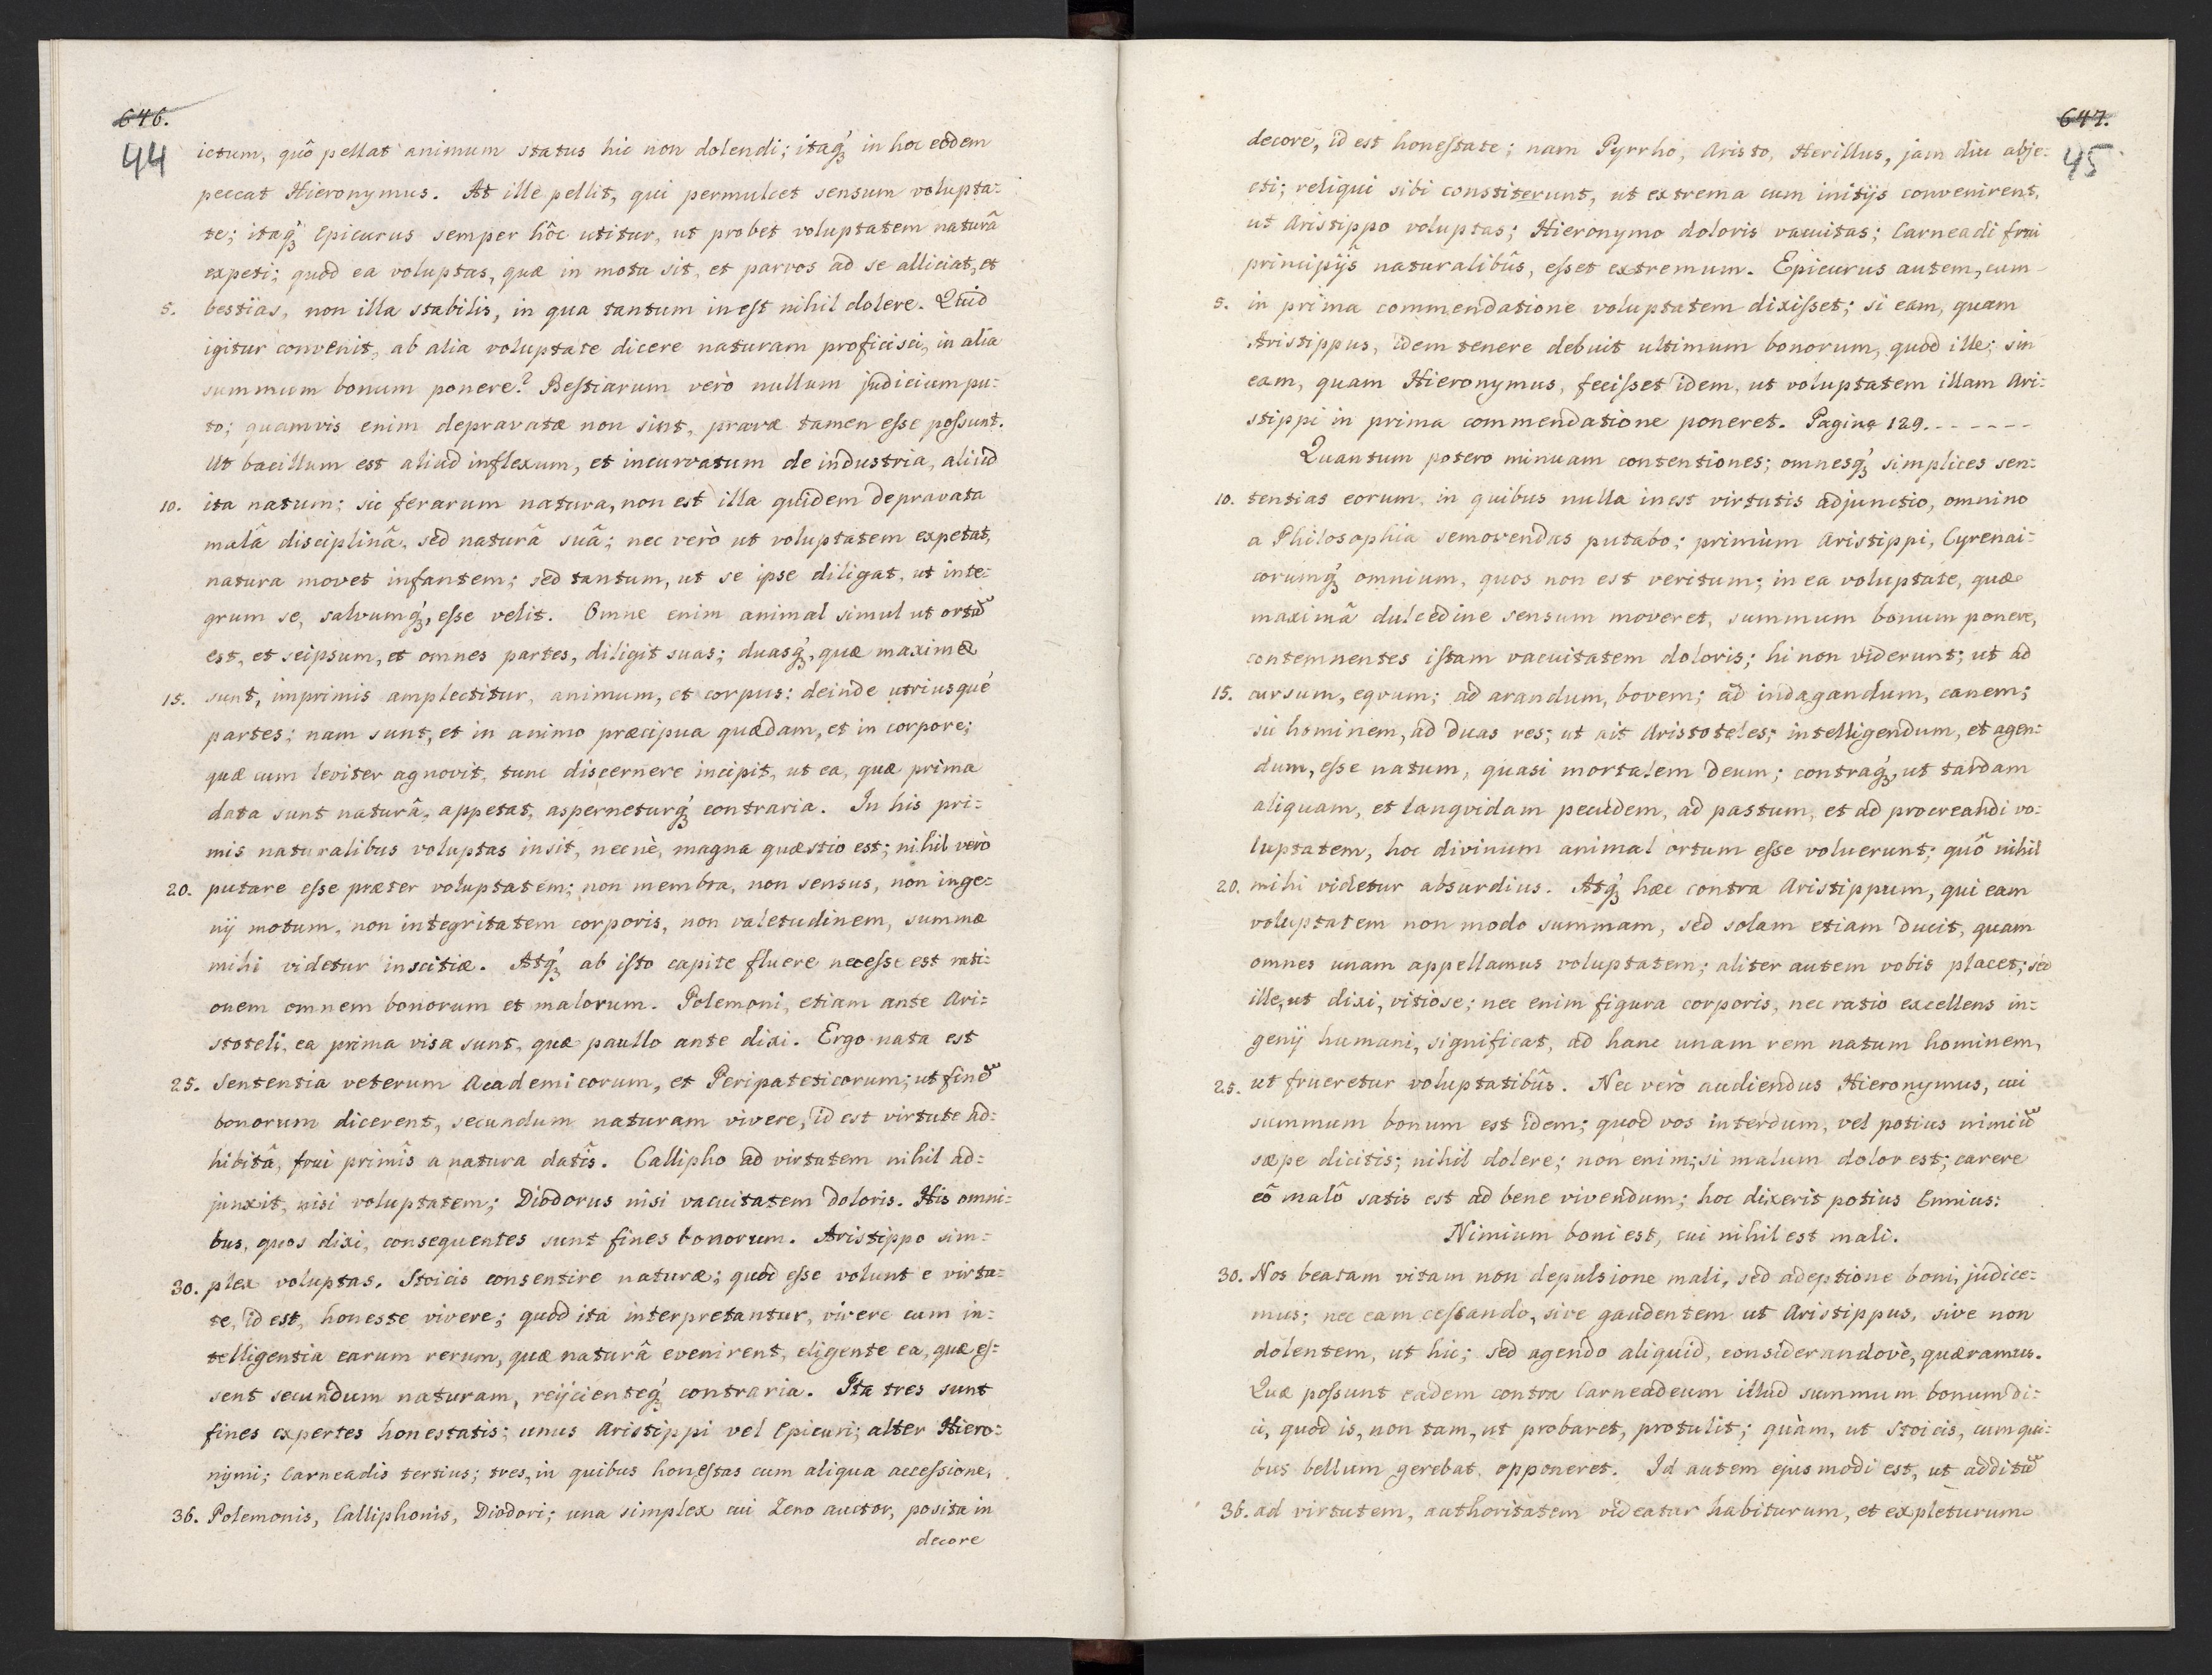 646.
44
ictum, quô pellat animum status hic non dolendi; itaq́ꝫ in hoc eodem
peccat Hieronymus. At ille pellit, qui permulcet sensum volupta=
te; itaq́ꝫ Epicurus semper hôc utitur, ut probet voluptatem naturâ
expeti; quod ea voluptas, quæ in motu sit, et parvos ad se alliciat, et
5. bestias, non illa stabilis, in qua tantum ineſt nihil dolere. Quid
igitur convenit, ab alia voluptate dicere naturam proficisci, in alia
summum bonum ponere? Beſtiarum verò nullum judicium pu=
to; quamvis enim depravatæ non sint, pravæ tamen eſse poſsunt.
Ut bacillum est aliud inflexum, et incurvatum de industria, aliud
10. ita natum; sic ferarum natura, non est illa quidem depravata
malâ disciplinâ, sed naturâ suâ; nec verò ut voluptatem expetat,
natura movet infantem; sed tantum, ut se ipse diligat, ut inte=
grum se, salvumq́ꝫ, eſse velit. Omne enim animal simul ut ortũ
est, et seipsum, et omnes partes, diligit suas; duasq́ꝫ, quæ maximæ
15. sunt, imprimis amplectitur, animum, et corpus; deinde utriusque
partes; nam sunt, et in animo præcipua quædam, et in corpore;
quæ cum leviter agnovit, tunc discernere incipit, ut ea, quæ prima
data sunt naturâ, appetat, asperneturq́ꝫ contraria. In his pri=
mis naturalibus voluptas insit, necnè, magna quæstio est; nihil verò
20. putare eſse præter voluptatem; non membra, non sensus, non inge=
nij motum, non integritatem corporis, non valetudinem, summæ
mihi videtur inscitiæ. Atq́ꝫ ab iſto capite fluere neceſse est rati=
onem omnem bonorum et malorum. Polemoni, etiam ante Ari=
stoteli, ea prima visa sunt, quæ paullo ante dixi. Ergo nata est
25. sententia veterum Academicorum, et Peripateticorum; ut finẽ
bonorum dicerent, secundum naturam vivere, id est virtute ad=
hibitâ, frui primîs a natura datîs. Callipho ad virtutem nihil ad=
junxit, nisi voluptatem; Diodorus nisi vacuitatem doloris. His omni=
bus, quos dixi, consequentes sunt fines bonorum. Aristippo sim=
30. plex voluptas. Stoicis consentire naturæ; quod eſse volunt e virtu=
te, id est, honeste vivere; quod ita interpretantur, vivere cum in=
telligentia earum rerum, quæ naturâ evenirent, eligente ea, quæ eſ=
sent secundum naturam, reijcienteq́ꝫ contraria. Ita tres sunt
fines expertes honestatis; unus Aristippi vel Epicuri; alter Hiero=
nymi; Carneadis tertius; tres, in quibus honeſtas cum aliqua acceſsione,
36. Polemonis, Calliphonis, Diodori; una simplex cui Zeno auctor, posita in
decore
647.
45
decore, id est honeſtate; nam Pyrrho, Aristo, Herillus, jam diu abje=
cti; reliqui sibi constiterunt, ut extrema cum initijs convenirent,
ut Aristippo voluptas; Hieronymo doloris vacuitas; Carneadi frui
principijs naturalibûs, eſset extremum. Epicurus autem, cum
5. in prima commendatione voluptatem dixiſset; si eam, quam
Aristippus, idem tenere debuit ultimum bonorum, quod ille; sin
eam, quam Hieronymus, feciſset idem, ut voluptatem illam Ari=
stippi in prima commendatione poneret. Pagina 129. - - - - - -
Quantum potero minuam contentiones; omnesq́ꝫ simplices sen=
10. tentias eorum, in quibus nulla inest virtutis adjunctio, omnino
a Philosophia semovendas putabo; primùm Aristippi, Cyrenai=
corumq́ꝫ omnium, quos non est veritum; in ea voluptate, quæ
maximâ dulcedine sensum moveret, summum bonum ponere,
contemnentes iſtam vacuitatem doloris; hi non viderunt; ut ad
15. cursum, eqvum; ad arandum, bovem; ad indagandum, canem;
sic hominem, ad duas res; ut ait Aristoteles; intelligendum, et agen=
dum, eſse natum, quasi mortalem Deum; contraq́ꝫ, ut tardam
aliquam, et langvidam pecudem, ad pastum, et ad procreandi vo=
luptatem, hoc divinum animal ortum eſse voluerunt; quô nihil
20. mihi videtur absurdius. Atq́ꝫ hæc contra Aristippum, qui eam
voluptatem non modo summam, sed solam etiam ducit, quam
omnes unam appellamus voluptatem; aliter autem vobis placet; sed
ille, ut dixi, vitiose; nec enim figura corporis, nec ratio excellens in=
genij humani, significat, ad hanc unam rem natum hominem,
25. ut frueretur voluptatibûs. Nec verò audiendus Hieronymus, cui
summum bonum est idem; quod vos interdum, vel potius nimiũ
sæpe dicitis; nihil dolere; non enim; si malum dolor est; carere
eô malô satis est ad bene vivendum; hoc dixerit potius Ennius:
Nimium boni est, cui nihil est mali.
30. Nos beatam vitam non depulsione mali, sed adeptione boni, judice=
mus; nec eam ceſsando, sive gaudentem ut Aristippus, sive non
dolentem, ut hic; sed agendo aliquid, considerandovè, quæramus.
Quæ poſsunt eadem contra Carneadeum illud summum bonum di=
ci, quod is, non tam, ut probaret, protulit; quàm, ut Stoicis, cum qui=
bus bellum gerebat, opponeret. Id autem ejusmodi est, ut additũ
36. ad virtutem, authoritatem videatur habiturum, et expleturum